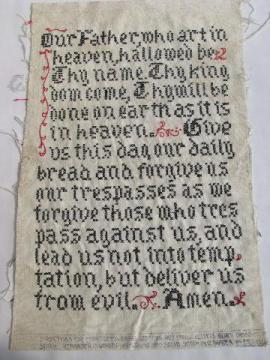 Our Father, who art in
heaven, hallowed be
Thy name, Thy king
dom come, Thy will be
done on earth as it is
in heaven. Give
us this day our daily
bread and forgive us
our trespasses as we
forgive those who tres
pass against us, and
lead us not into temp
tation, but deliver us
from evil. Amen.